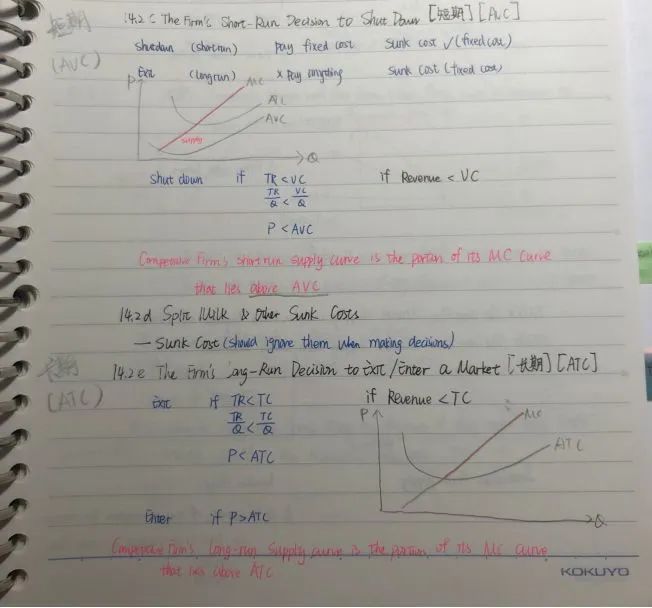 短期
(AVC)
14.2 c The Firm's Short-Run Decision to Shut Down [短期] [AVC]
Shutdown (short run) Pay fixed cost Sunk cost ✓(fixed cost)
Exit (long run) × Pay anything Sunk cost (fixed cost)
P
MC
ATC
AVC
supply
Q
Shut down if TR < VC if Revenue < VC
TR/Q < VC/Q
P < AVC
Competitive Firm's short run supply curve is the portion of its MC curve
that lies above AVC
14.2 d Spilt Milk & Other Sunk Costs
— Sunk Cost (should ignore them when making decisions)
长期
(ATC)
14.2 e The Firm's Long-Run Decision to Exit/Enter a Market [长期] [ATC]
Exit if TR<TC if Revenue <TC
TR/Q < TC/Q
P < ATC
P
MC
ATC
Q
Enter if P>ATC
Competitive Firm's Long-run supply curve is the portion of its MC curve
that lies above ATC
KOKUYO